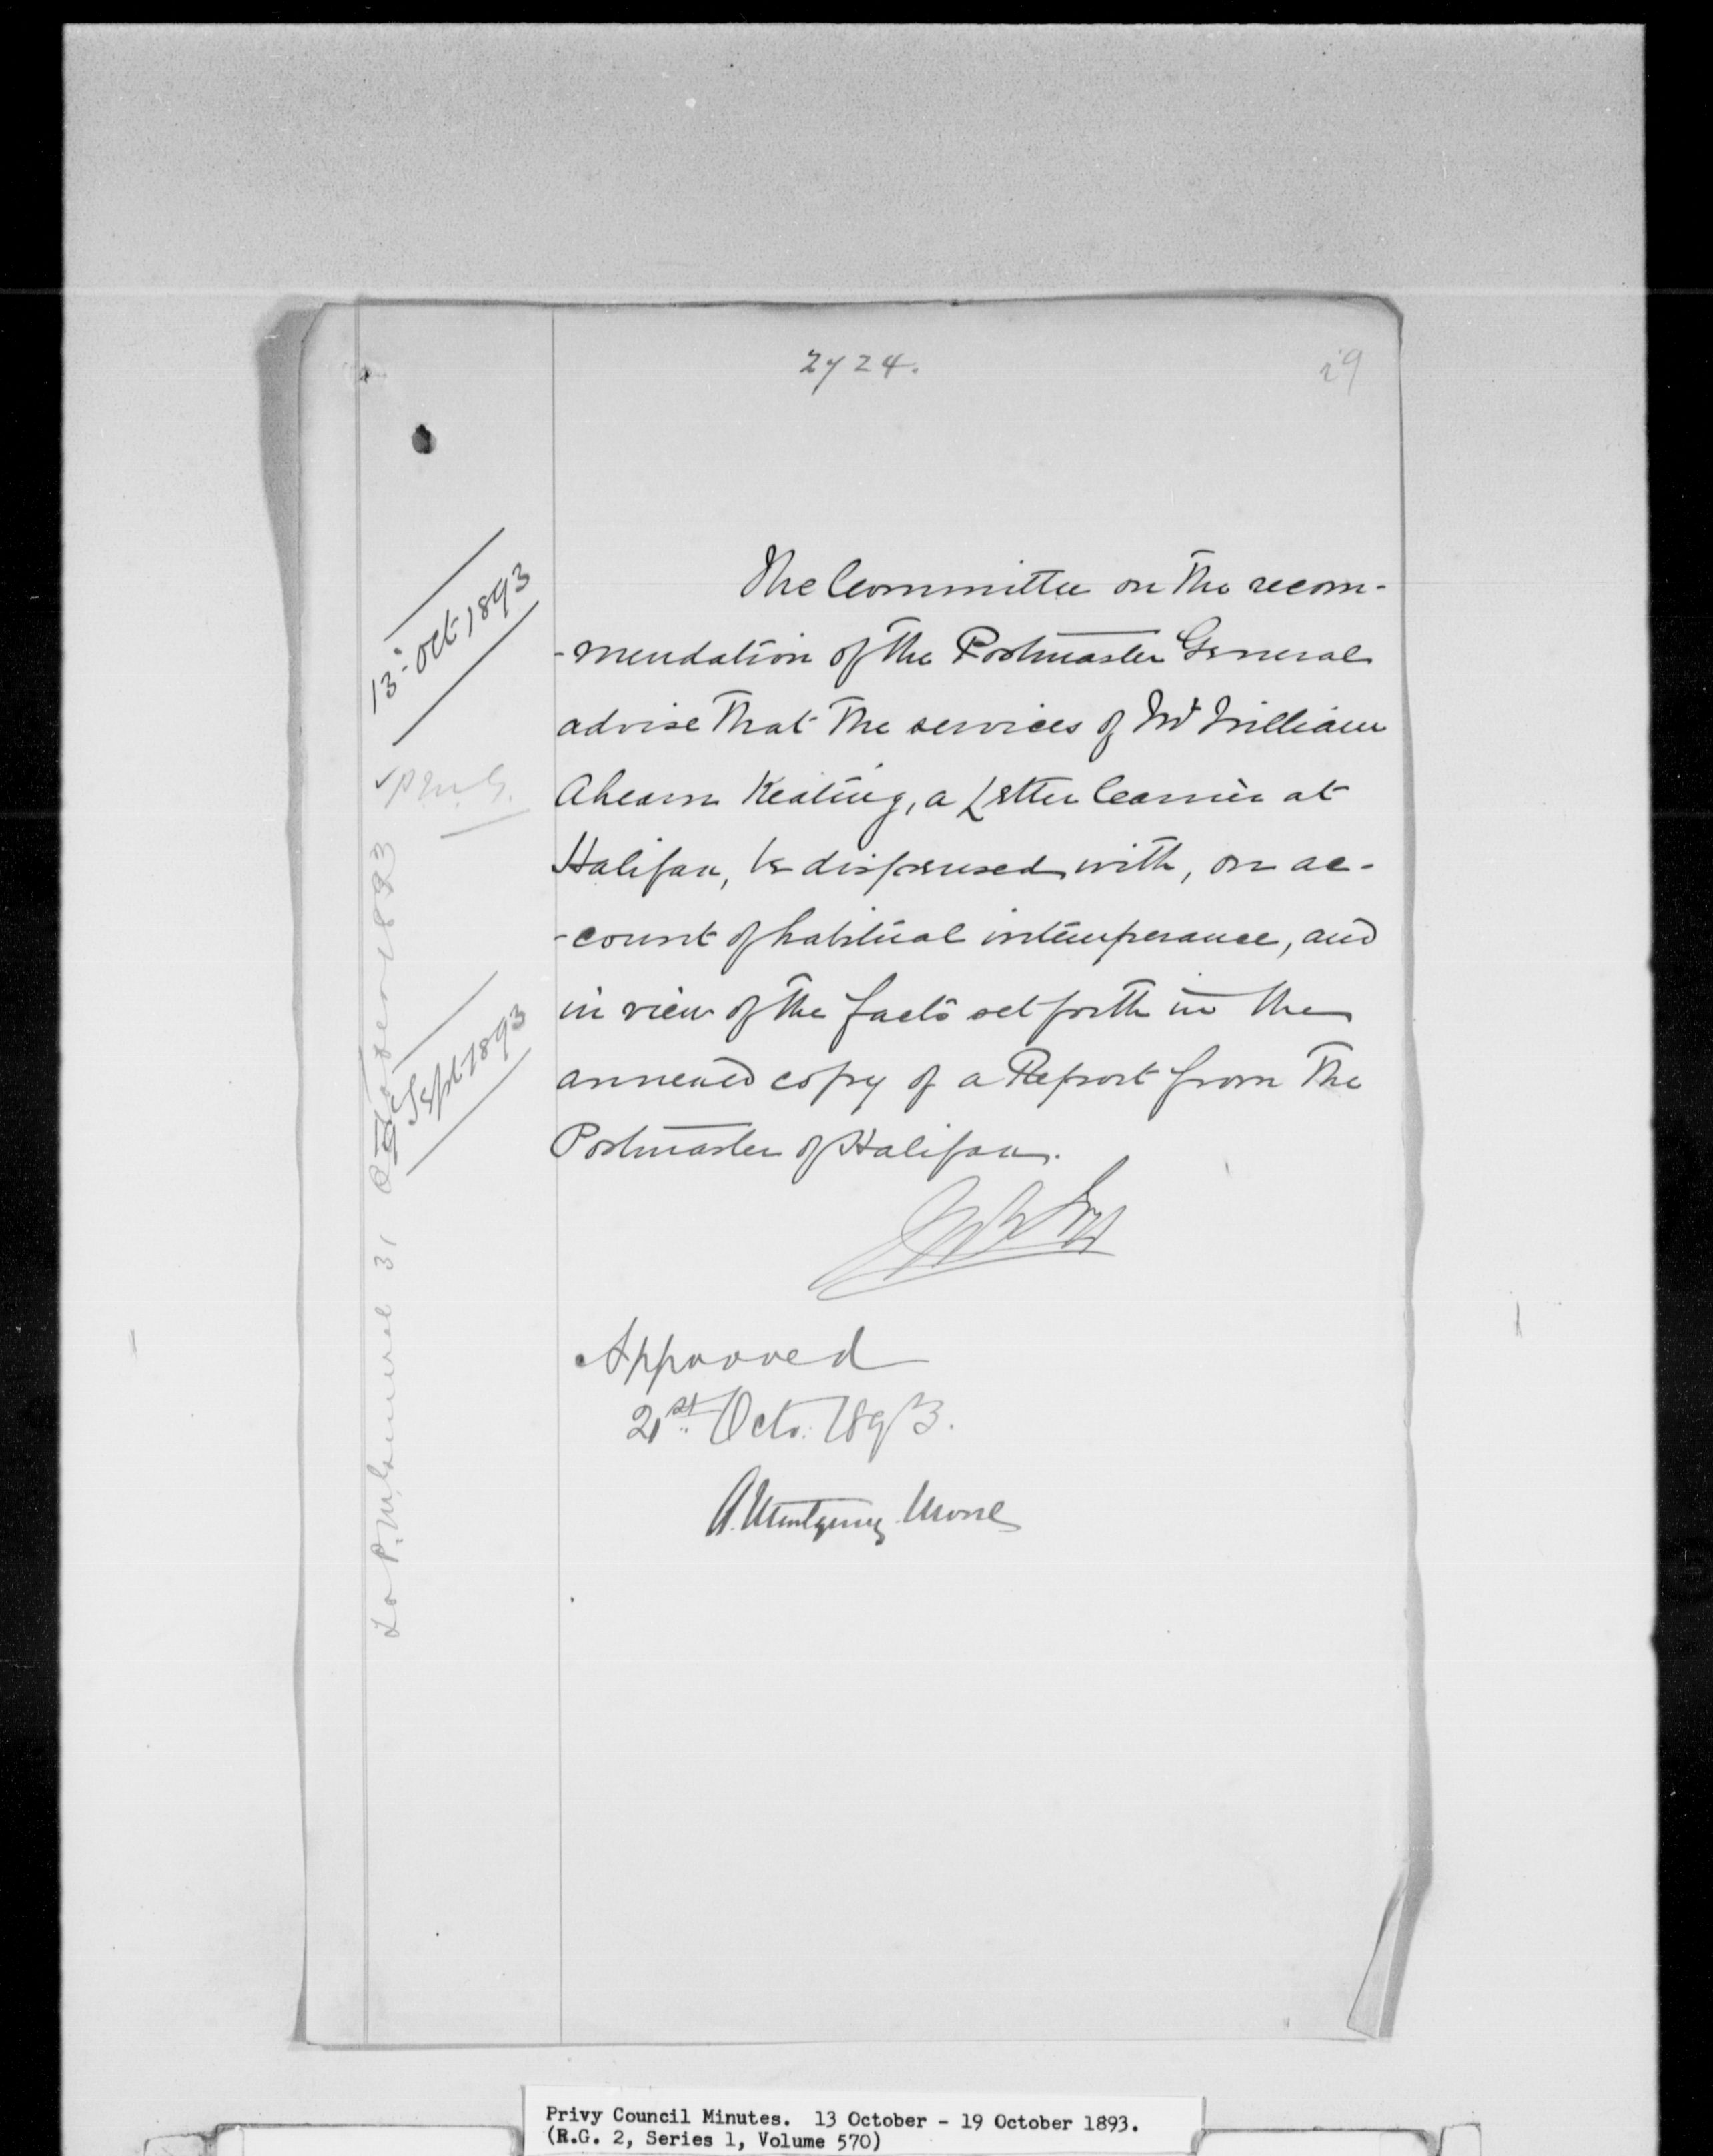 2724.
29
13: Oct 1893
P.M.G.
Sept 1893
The Committee on the recom-
-mendation of the Postmaster General
advise that the services of Mr William
Ahearn Keating, a Letter Carrier at
Halifax, be dispensed with, on ac-
-count of habitual intemperance, and
in view of the facts set forth in the
annexed copy of a Report from the
Postmaster of Halifax.
Approved
21st Octo. 1893.
A. Montgomery Moore
To P.M. General 31 October 1893
Privy Council Minutes. 13 October - 19 October 1893.
(R.G. 2, Series 1, Volume 570)